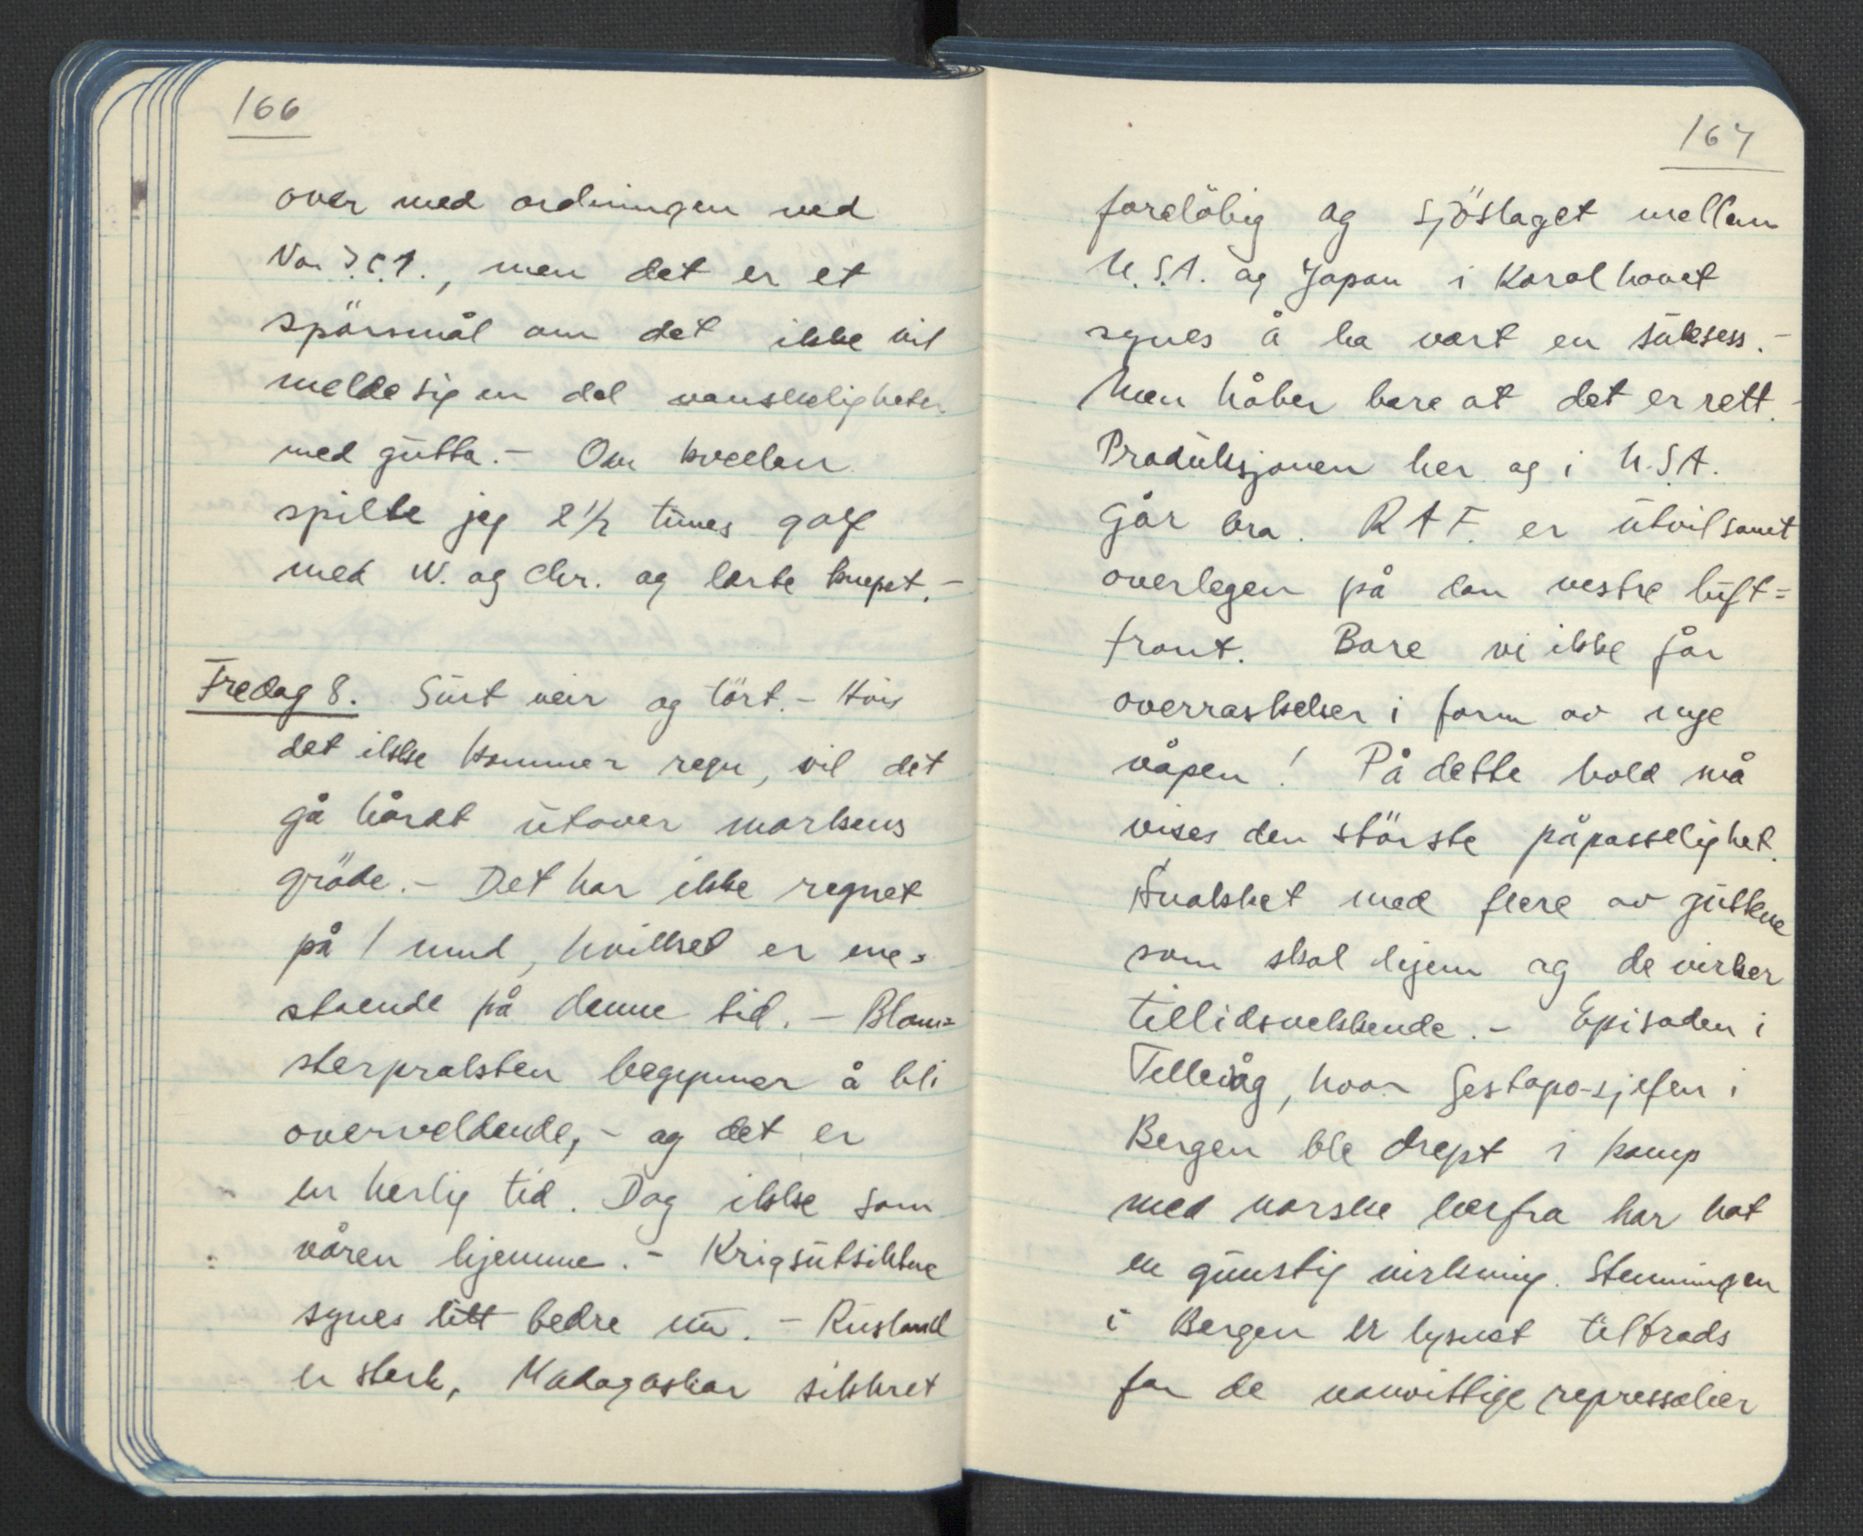 166
over med ordningen ved
No. I.C.1., men det er et
spörsmål om det ikke vil
melde sig en del vanskeligheter
med gutta. – Om kvellen
spilte jeg 2 1/2 times golf
med W. og Chr. og lærte knepet. –
Fredag 8. Surt veir og tört. – Hvis
det ikke kommer regn, vil det
gå hårdt utover markens
gröde. – Det har ikke regnet
på 1 mnd, hvilket er ene=
stående på denne tid. – Blom=
sterprakten begynner å bli
overveldende, – og det er
en herlig tid. Dog ikke som
våren hjemme. – Krigsutsiktene
synes litt bedre nu. – Rusland
er sterk, Madagaskar sikkret
167
foreløbig og sjöslaget mellem
U.S.A. og Japan i Koralhavet
synes å ha vært en suksess. –
Men håber bare at det er rett. –
Produksjonen her og i U.S.A.
går bra. RAF. er utvilsomt
overlegen på den vestre luft=
front. Bare vi ikke får
overraskelser i form av nye
våpen! På dette hold må
vises den störste påpasselighet.
Snakket med flere av guttene
som skal hjem og de virker
tillidsvekkende. – Episoden i
Tellevåg, hvor Gestapo-sjefen i
Bergen ble drept i kamp
med norske herfra har hat
en gunstig virkning. Stemningen
i Bergen er lysnet tiltrods
for de vanvittige represalier